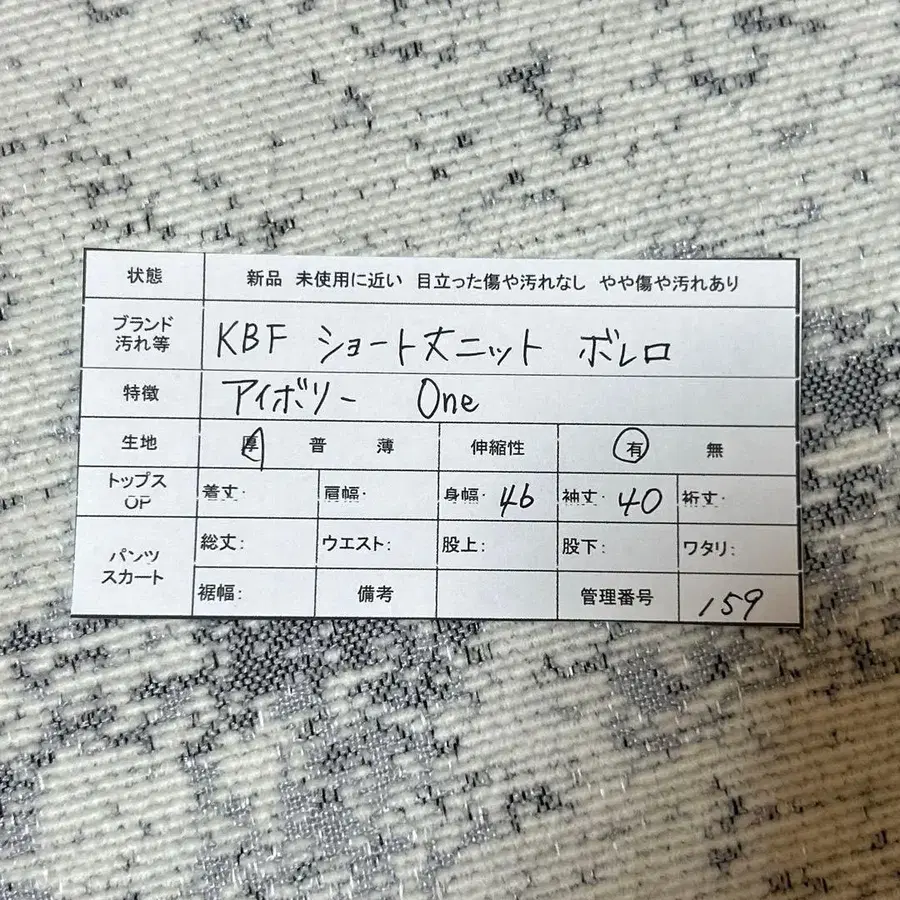 状態 新品 未使用に近い 目立った傷や汚れなし やや傷や汚れあり
ブランド
汚れ等 KBF ショート丈ニット ボレロ
特徴 アイボリー One
生地 厚 普 薄 伸縮性 有 無
トップス
OP 着丈: 肩幅: 身幅: 46 袖丈: 40 裄丈:
パンツ
スカート 総丈: ウエスト: 股上: 股下: ワタリ:
裾幅: 備考 管理番号 159